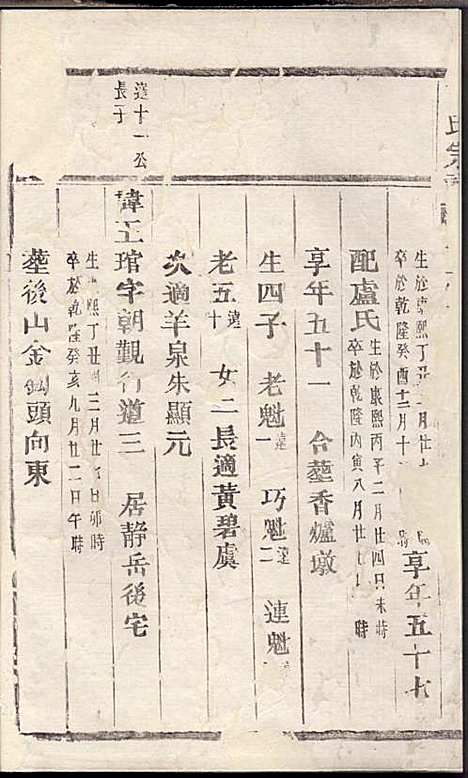 氏宗
生於康熙丁丑 月廿
卒於乾隆癸酉十二月十
享年五十七
配盧氏
生於康熙丙子二月廿四日未時
卒於乾隆丙寅八月廿 時
享年五十一 合塟香爐墩
生四子 老魁遠一 巧魁遠二 連魁遠
老五遠十 女二長適黃碧虞
次適羊泉朱顯元
遠十一公
長子
諱工琯字朝觀行道三 居静岳後宅
生 熙丁丑 二月廿 日卯時
卒於乾隆癸亥九月廿二日午時
塟後山金 頭向東